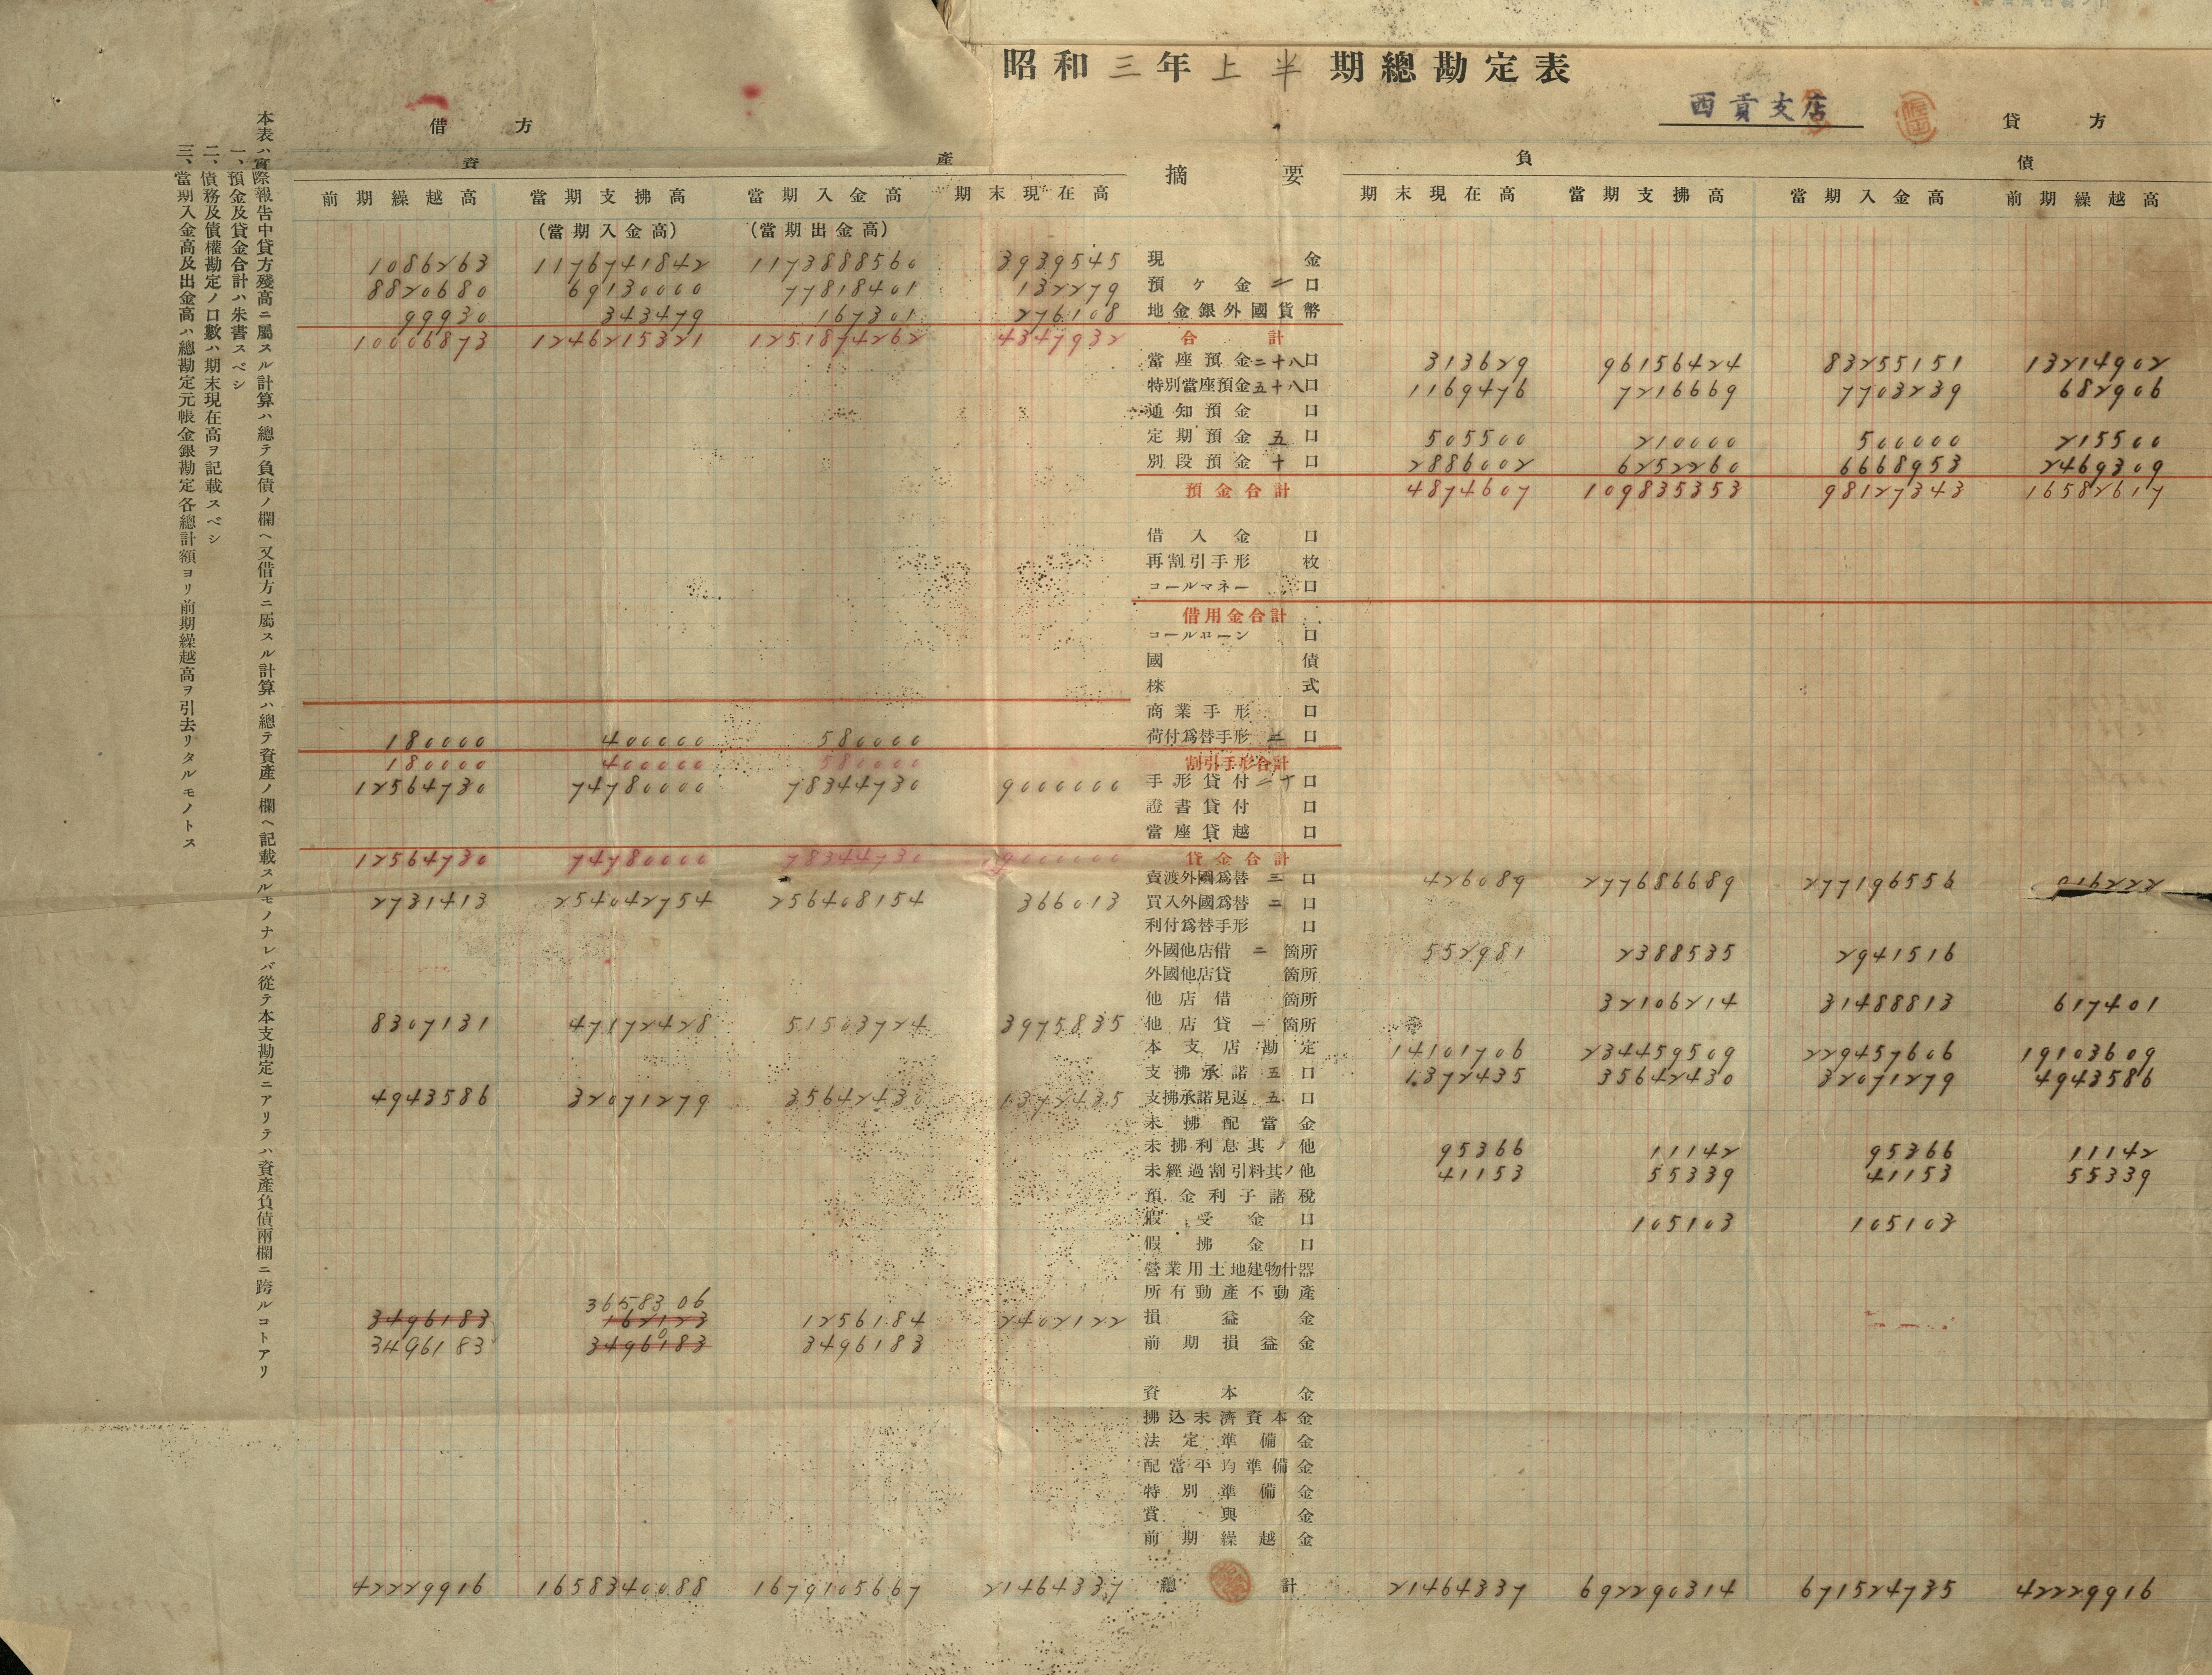 昭和三年上半期總勘定表
西貢支店
借方 貸方
資產 摘要 負債
前期繰越高 當期支拂高 當期入金高 期末現在高 期末現在高 當期支拂高 當期入金高 前期繰越高
(當期入金高) (當期出金高)
1086263 1176741842 1173888560 3939545 現金
8820680 69130000 77818401 132279 預ケ金 二口
99930 343479 167301 276108 地金銀外國貨幣
10006873 1246215321 1251874262 4347932 合計
當座預金 二十八口 313629 96156424 83255151 13214902
特別當座預金 五十八口 1169476 7216669 7703239 682906
通知預金 口
定期預金 五口 505500 210000 500000 215500
別段預金 十口 2886002 6252260 6668953 2469309
預金合計 4874607 109835353 98127343 16582617
借入金 口
再割引手形 枚
コールマネー 口
借用金合計
コールローン 口
國債
株式
商業手形 口
180000 400000 580000 荷付爲替手形 口
180000 400000 580000 割引手形合計
12564730 74780000 78344730 9000000 手形貸付 二十口
證書貸付 口
當座貸越 口
12564730 74780000 78344730 9000000 貸金合計
賣渡外國爲替 三口 426089 277686689 277196556 916222
2731413 254042754 256408154 366013 買入外國爲替 二口
利付爲替手形 口
外國他店借 二箇所 552981 2388535 2941516
外國他店貸 箇所
他店借 箇所 32106214 31488813 617401
8307131 47172428 51503724 3975835 他店貸 一箇所
本支店勘定 14101706 234459509 229457606 19103609
支拂承諾 五口 1372435 35642430 32071279 4943586
4943586 32071279 35642430 1372435 支拂承諾見返 五口
未拂配當金
未拂利息其ノ他 95366 11142 95366 11142
未經過割引料其ノ他 41153 55339 41153 55339
預金利子諸稅
假受金 口 105103 105103
假拂金 口
營業用土地建物什器
所有動產不動產
3658306
3496183 162123 1256184 2402122 損益金
3496183 3496183 3496183 前期損益金
資本金
拂込未濟資本金
法定準備金
配當平均準備金
特別準備金
賞與金
前期繰越金
42229916 1658340088 1679105667 21464337 總計 21464337 692290314 671524735 42229916
本表ハ實際報告中貸方殘高ニ屬スル計算ハ總テ負債ノ欄ヘ又借方ニ屬スル計算ハ總テ資產ノ欄ヘ記載スルモノナレバ從テ本支勘定ニアリテハ資產負債兩欄ニ跨ルコトアリ
一、預金及貸金合計ハ朱書スベシ
二、債務及債權勘定ノ口數ハ期末現在高ヲ記載スベシ
三、當期入金高及出金高ハ總勘定元帳金銀勘定各總計額ヨリ前期繰越高ヲ引去リタルモノトス